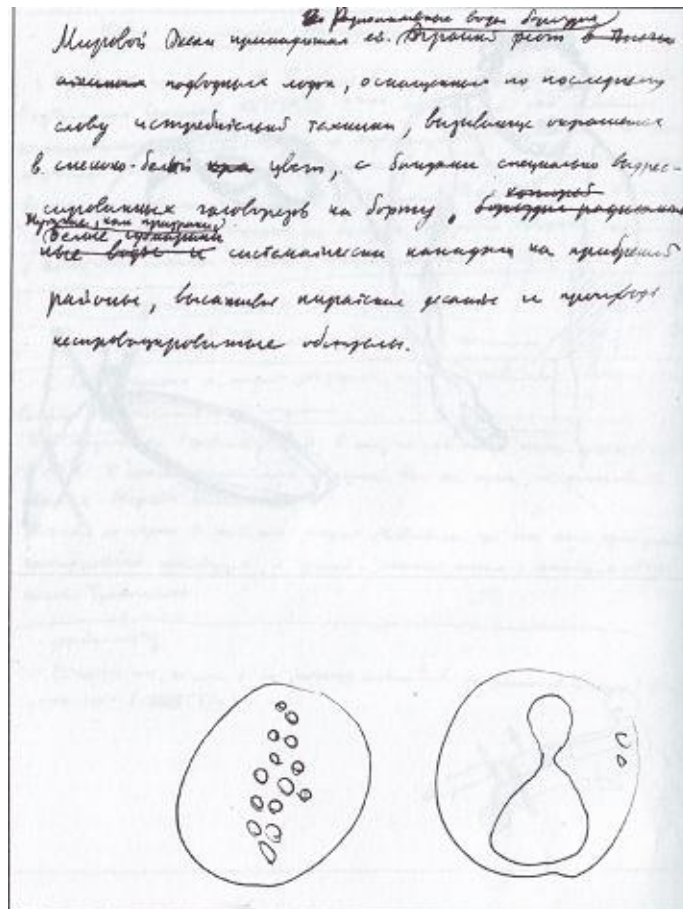 Радиоактивные воды бороздил
Мировой Океан принадлежал ей. флот в
подводных лодок, оснащенных по последнему
слову истребительной техники, вызывающе окрашенных
в снежно-белый цвет, с бандами специально выдрес-
сированных головорезов на борту, бороздил радиоактив
Белые субмарины
ные воды и систематически нападали на прибрежные
районы, высаживая пиратские десанты и производя
неспровоцированные обстрелы.